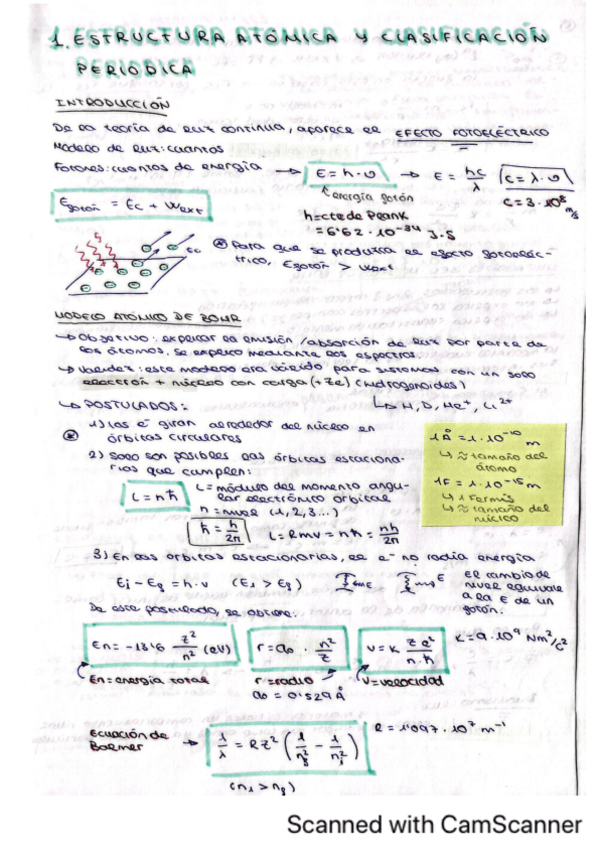 1. ESTRUCTURA ATÓMICA Y CLASIFICACIÓN
PERIODICA
INTRODUCCIÓN
De la teoría de luz continua, aparece el EFECTO FOTOELÉCTRICO
Modelo de luz: cuantos
Fotones: cuantos de energía → E = h · υ → E = hc/λ c = λ · υ
energía fotón c = 3 · 10⁸ m/s
Efotón = Ec + Wext
h = cte de Planck
= 6'62 · 10⁻³⁴ J·s
Ec
* Para que se produzca el efecto fotoeléc-
trico, Efotón > Wext
MODELO ATÓMICO DE BOHR
↳ Objetivo: explicar la emisión/absorción de luz por parte de
los átomos, se explico mediante los espectros.
↳ Validez: este modelo era válido para sistemas con un solo
electrón + núcleo con carga (+Ze) (Hidrogenoides)
↳ H, D, He⁺, Li²⁺
↳ POSTULADOS:
1) los e⁻ giran alrededor del núcleo en
órbitas circulares
2) Solo son posibles las órbitas estaciona-
rias que cumplen:
L = nħ
L = módulo del momento angu-
lar electrónico orbital
n = nivel (1, 2, 3...)
ħ = h/2π L = Rmv = nħ = nh/2π
1 Å = 1 · 10⁻¹⁰ m
↳ ≈ tamaño del
átomo
1F = 1 · 10⁻¹⁵ m
↳ 1 Fermis
↳ ≈ tamaño del
núcleo
3) En las órbitas estacionarias, el e⁻ no radia energía
Ei - Ef = h · ν (Ei > Ef)
El cambio de
nivel equivale
a la E de un
fotón.
De este postulado, se obtiene:
En = -13'6 Z²/n² (eV)
r = a₀ · n²/Z
v = K Z e²/n · ħ
K = 9 · 10⁹ Nm²/C²
En = energía total
r = radio
a₀ = 0'529 Å
v = velocidad
Ecuación de
Balmer → 1/λ = RZ² (1/nf² - 1/ni²)
R = 1'097 · 10⁷ m⁻¹
(ni > nf)
Scanned with CamScanner